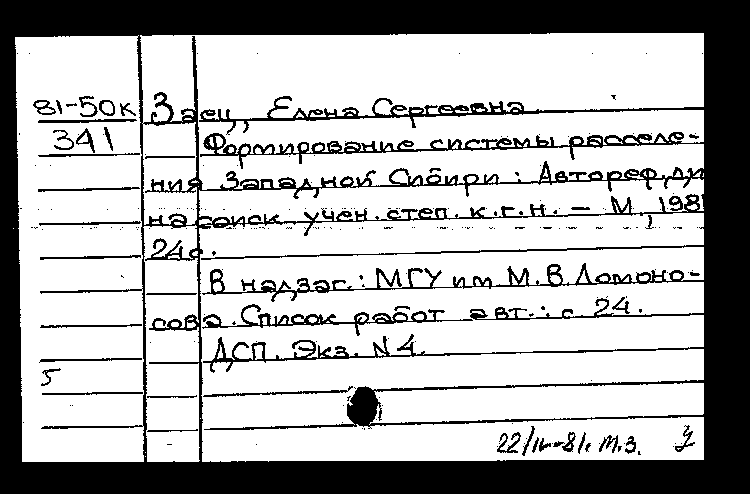 81-50к Заец, Елена Сергеевна
341 Формирование системы расселе-
ния Западной Сибири : Автореф. ди
на соиск учен. степ. к.г.н. – М., 198
24с.
В надзаг.: МГУ им М.В. Ломоно-
сова. Список работ авт.: с 24.
ДСП. Экз. N 4.
5
22/IV-81г. М.З.